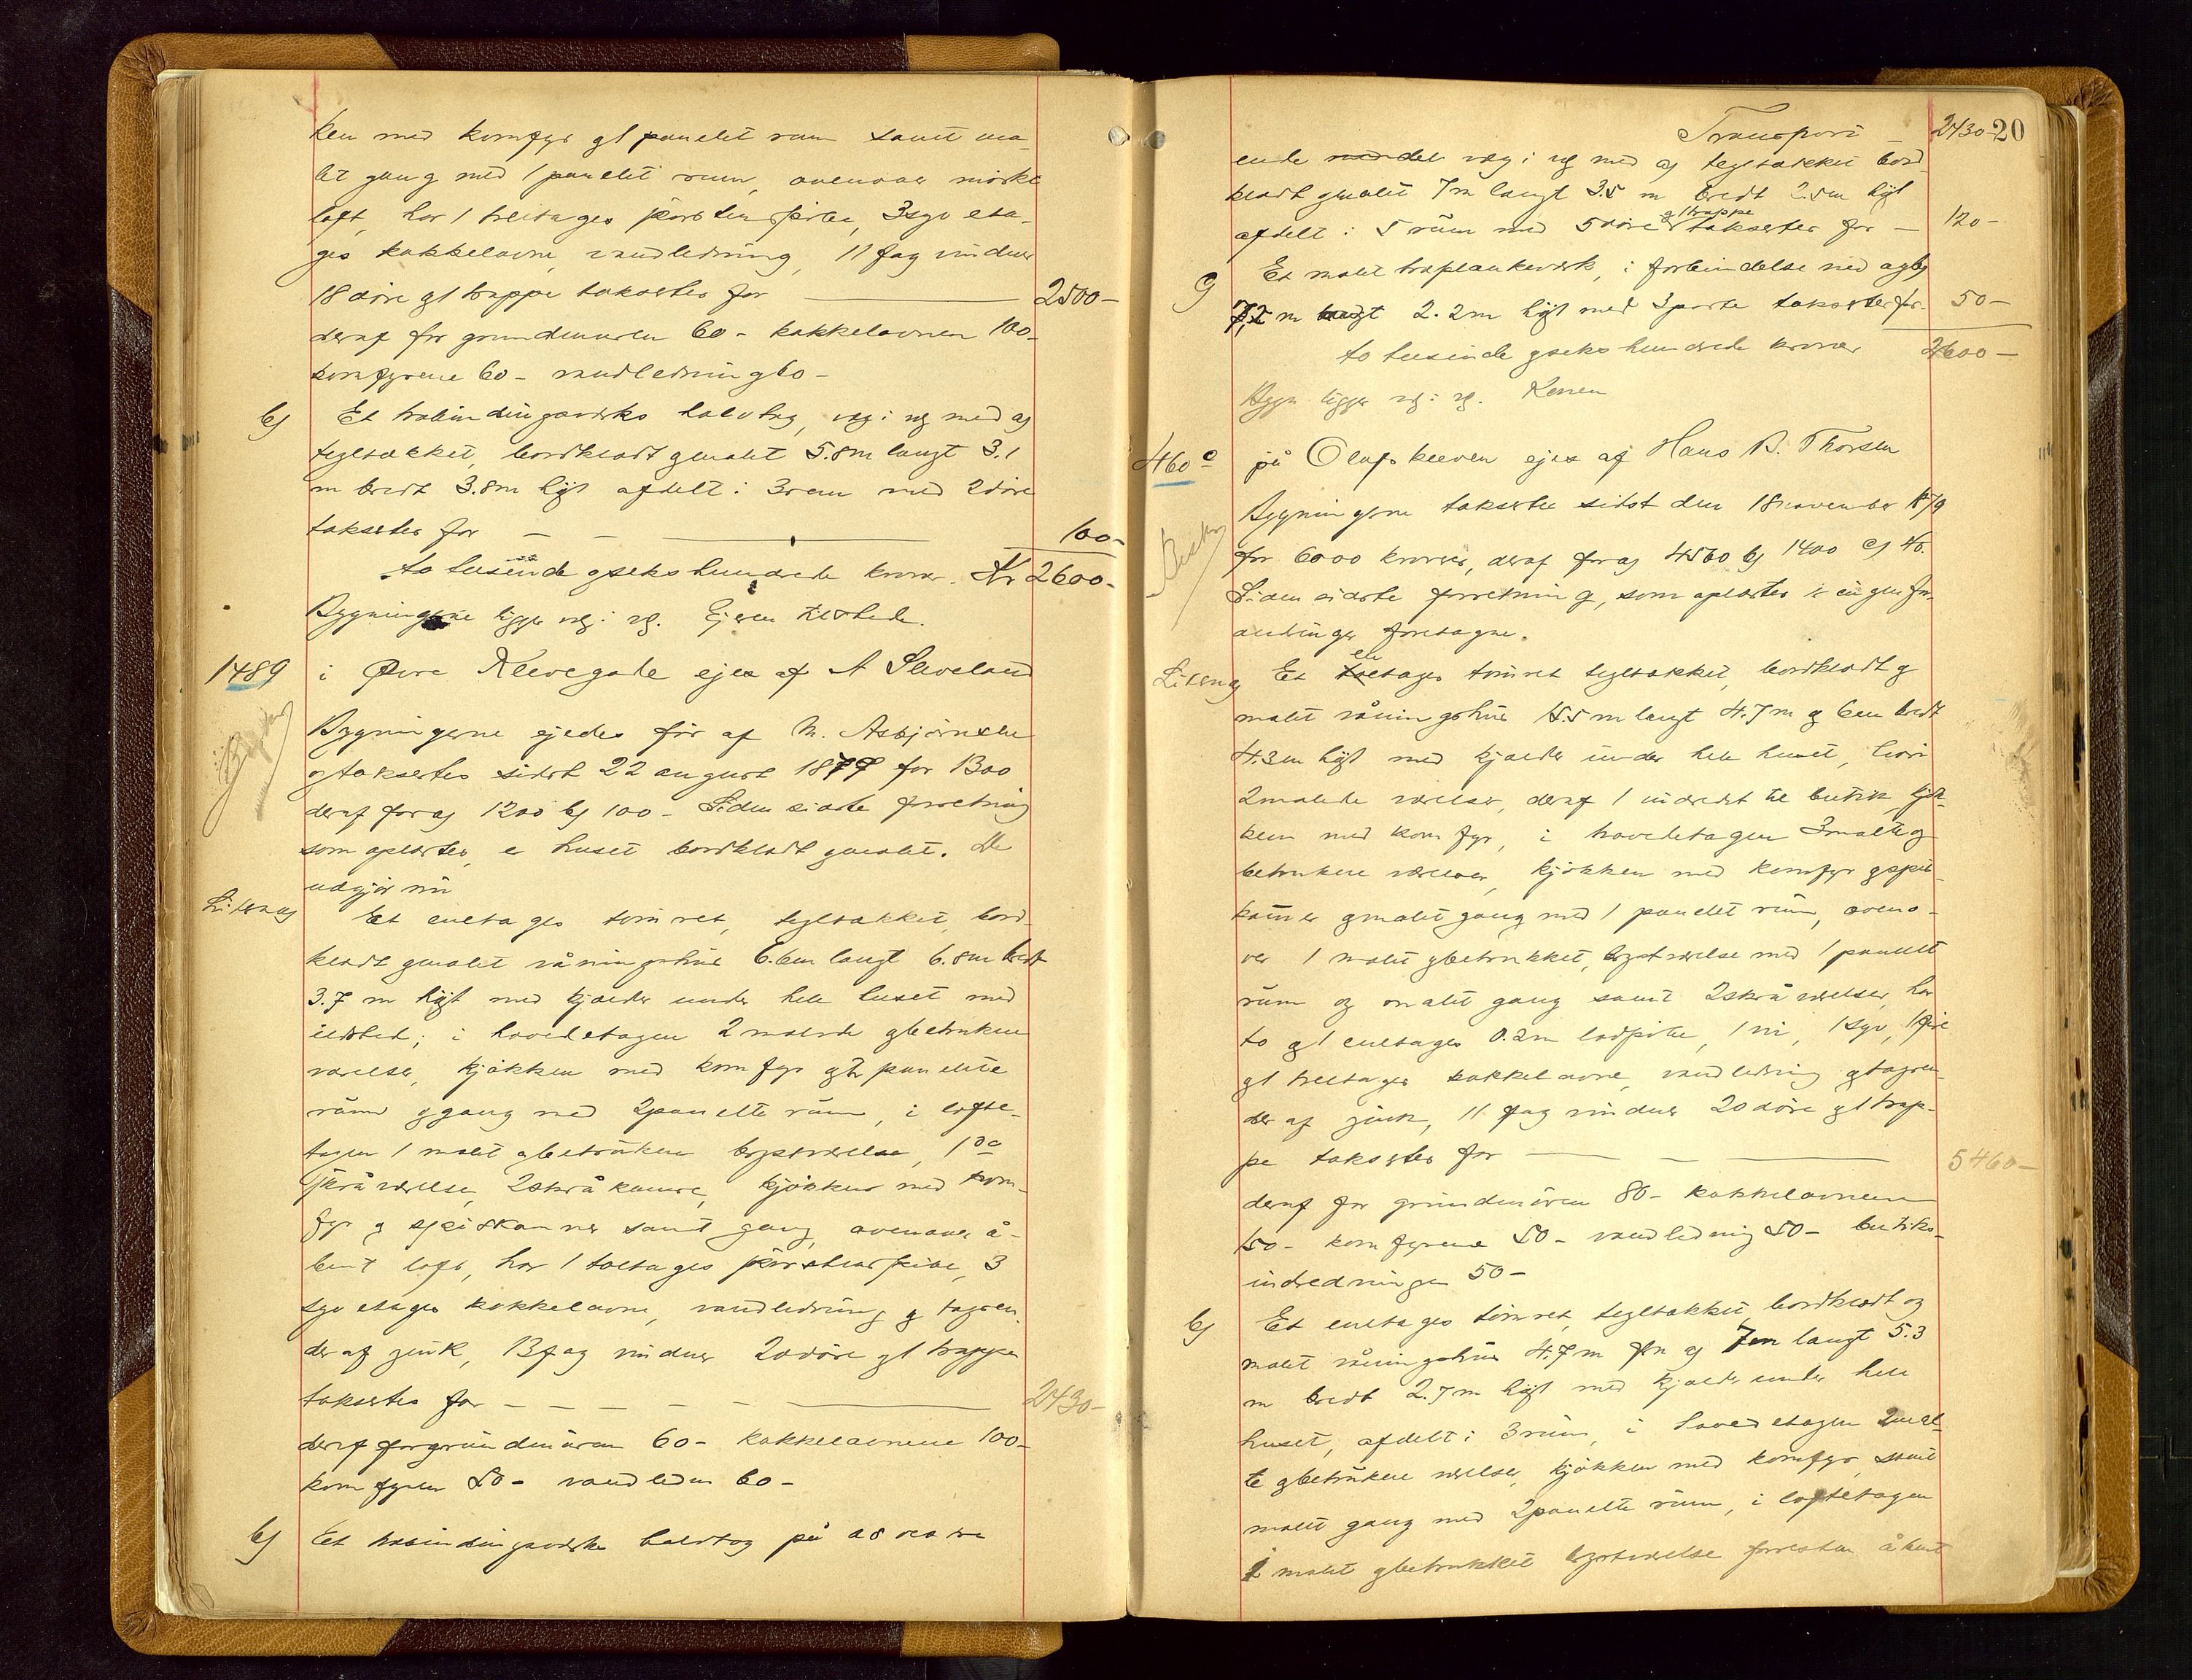 ken med komfyr g1 panelt rum samt ma-
let gang med 1 panelt rum, ovenover mørkt
loft, har 1 treetages skorstenspibe, 3 syv eta-
ges kakkelovne, vandledning, 11 fag vinduer
18 døre g1 trappe taksertes for — 2500-
deraf for grundmuren 60- kakkelovnen 100-
komfyrene 60- vandledning 60-
b) Et trebindingsværks halvtag, væg i væg med a)
tegltækket, bordklædt g malet 5.8m langt 3.1
m bredt 3.8m højt afdelt i 3 rum med 2 døre
takserter for — — — 100-
to tusinde g seks hundrede kroner. Kr 2600-
Bygningerne ligge væg i væg. Ejeren tilstede.
1489 i Øvre Kleivegade ejes af A Sleveland
Bygningerne ejedes før af M. Asbjørnsen
og taksertes sidst 22 august 1877 for 1300
deraf for a) 1200 b) 100- Siden sidste forretning
som oplæstes, er huset bordklædt g malet. De
udgjør nu
Litr a) Et enetages tømret, tegltækket, bord-
klædt g malet våningshus 6.6m langt 6.8m bredt
3.7 m højt med kjælder under hele huset med
ildsted; i hovedetagen 2 malede g betrukne
værelser, kjøkken med komfyr g 2 panelte
rum g gang med 2 panelte rum, i lofte-
tagen 1 malet g betrukken kvistværelse, 1 do
skråværelse, 2 skråkamre, kjøkken med kom-
fyr g spiskammer samt gang, ovenover å-
bent loft, har 1 toetages skorstenspibe, 3
syv etages kakkelovne, vandledning g tagren-
der af zink, 13 fag vinduer 20 døre g1 trappe
takserter for — — — — — 2430-
deraf for grundmuren 60- kakkelovnene 100-
komfyren 50- vandledn 60-
b) Et trebindingsværks halvtag på
Transport — 2430- 20
ende væg i væg med a) tegltækket bord-
klædt g malet 7m langt 3.5 m bredt 2.5m højt
g 1 trappe
afdelt i 5 rum med 5 døre takserter for — 120-
c) Et malet træplankeværk, i forbindelse med a g b)
7,2 m langt 2.2m højt med 3 porte takserter for- 50-
to tusinde g seks hundrede kroner 2600-
Bygn ligger væg i væg.
460 c på Olafskleven ejes af Hans B. Thorsen
Bygningerne takserter sidst den 18 november 1879
for 6000 kroner, deraf for a) 4560 b) 1400 c) 40.
Siden sidste forretning, som oplæstes er ingen for-
andringer foretagne.
en
Litra a) Et toetages tømret tegltækket, bordklædt g
malet våningshus 15.5 m langt 4.7m g 6m bredt
4.3m højt med kjælder under hele huset, hvori
2 malede værelser, deraf 1 indredet til butik, kjøk-
ken med komfyr, i hovedetagen 3 malte g
betrukne værelser, kjøkken med komfyr g spis-
kammer g malet gang med 1 panelt rum, oveno-
ver 1 malet g betrukket, kvistværelse med 1 panelt
rum og malet gang samt 2 skråværelser, har
to g 1 enetages 0.2m lodpibe, 1 ni, 1 syv, 1 fire
g1 treetages kakkelovne, vandledning g tagren-
der af zink, 11 fag vinduer 20 døre g1 trap-
pe takserter for — — — 5460-
deraf for grundmuren 80- kakkelovnene
150- komfyrene 50- vandledning 50- butiks-
indredningen 50-
b) Et enetages tømret, tegltækket, bordklædt og
malet våningshus 4.7m fra a) 7m langt 5.3
m bredt 2.7m højt med kjælder under hele
huset, afdelt i 3 rum, i hovedetagen 2 mal-
te g betrukne værelser, kjøkken med komfyr, samt
malet gang med 2 panelte rum, i loftetagen
1 malet g betrukket kvistværelse forresten åbent